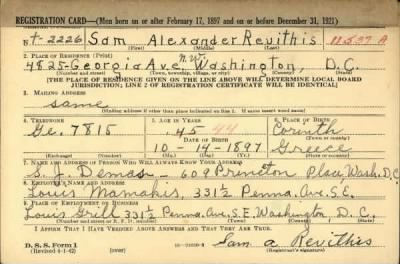 REGISTRATION CARD—(Men born on or after February 17, 1897 and on or before December 31, 1921)
SERIAL NUMBER 1. NAME (Print) ORDER NUMBER
T-2226 Sam Alexander Revithis 11,537 A
(First) (Middle) (Last)
2. PLACE OF RESIDENCE (Print) n.w.
4825-Georgia Ave. Washington, D.C.
(Number and street) (Town, township, village, or city) (County) (State)
[THE PLACE OF RESIDENCE GIVEN ON THE LINE ABOVE WILL DETERMINE LOCAL BOARD
JURISDICTION; LINE 2 OF REGISTRATION CERTIFICATE WILL BE IDENTICAL]
3. MAILING ADDRESS
Same
[Mailing address if other than place indicated on line 2. If same insert word same]
4. TELEPHONE 5. AGE IN YEARS 6. PLACE OF BIRTH
Ge. 7815 45 44 Corinth
DATE OF BIRTH (Town or county)
10-14-1897 Greece
(Exchange) (Number) (Mo.) (Day) (Yr.) (State or country)
7. NAME AND ADDRESS OF PERSON WHO WILL ALWAYS KNOW YOUR ADDRESS
S. J. Demas - 609 Princeton Place, Wash. D.C.
8. EMPLOYER'S NAME AND ADDRESS
Louis Mamakis, 331½ Penna. Ave. S.E.
9. PLACE OF EMPLOYMENT OR BUSINESS
Louis Grill 331½ Penna. Ave. S.E. Washington D.C.
(Number and street or R. F. D. number) (Town) (County) (State)
I AFFIRM THAT I HAVE VERIFIED ABOVE ANSWERS AND THAT THEY ARE TRUE.
D. S. S. Form 1
(Revised 4-1-42) (over) Sam a Revithis
(Registrant's signature)